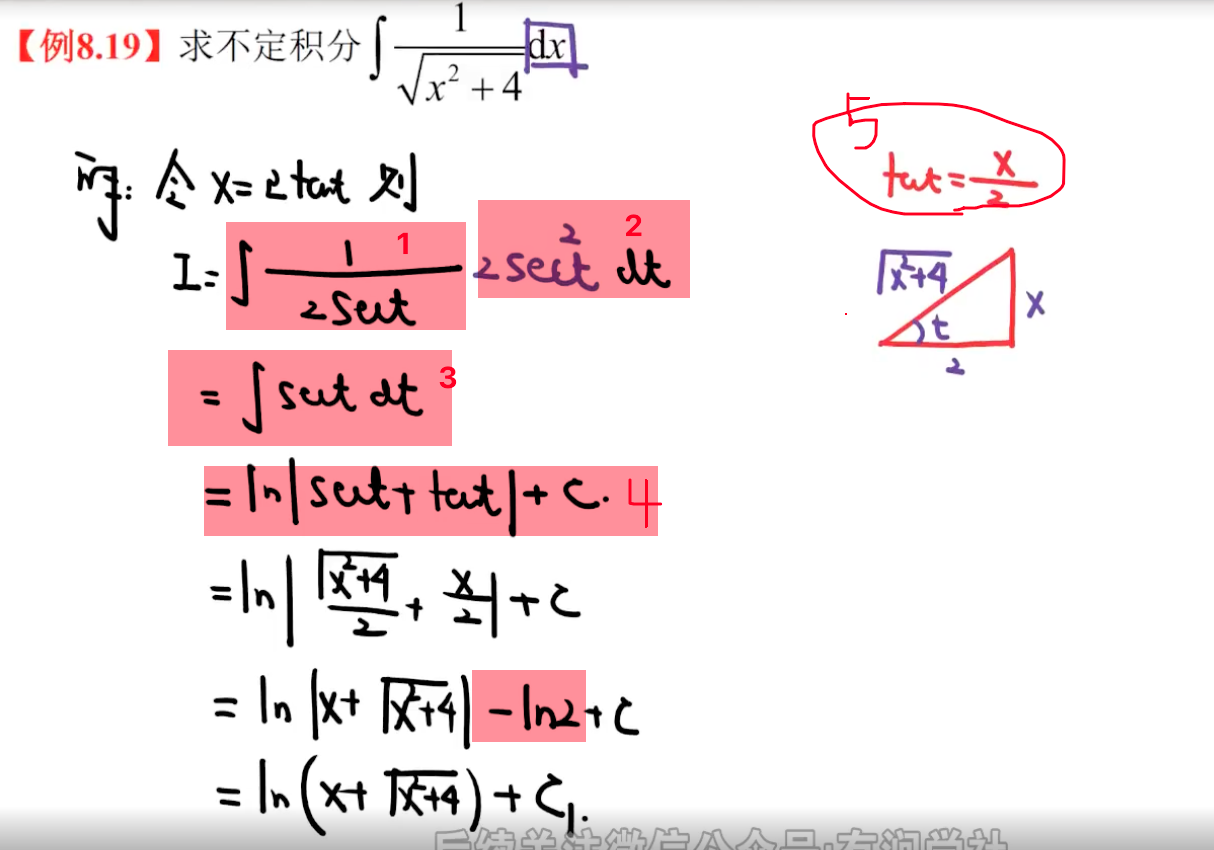 【例8.19】求不定积分∫ 1/√(x²+4) dx
解: 令 x=2tant 则
I=∫ 1/(2sect) 2sec²t dt
1
2
=∫sect dt
3
=ln|sect+tant|+C.
4
=ln|√(x²+4)/2 + x/2|+C
=ln|x+√(x²+4)|-ln2+C
=ln(x+√(x²+4))+C₁.
5
tant=x/2
√(x²+4)
t
x
2